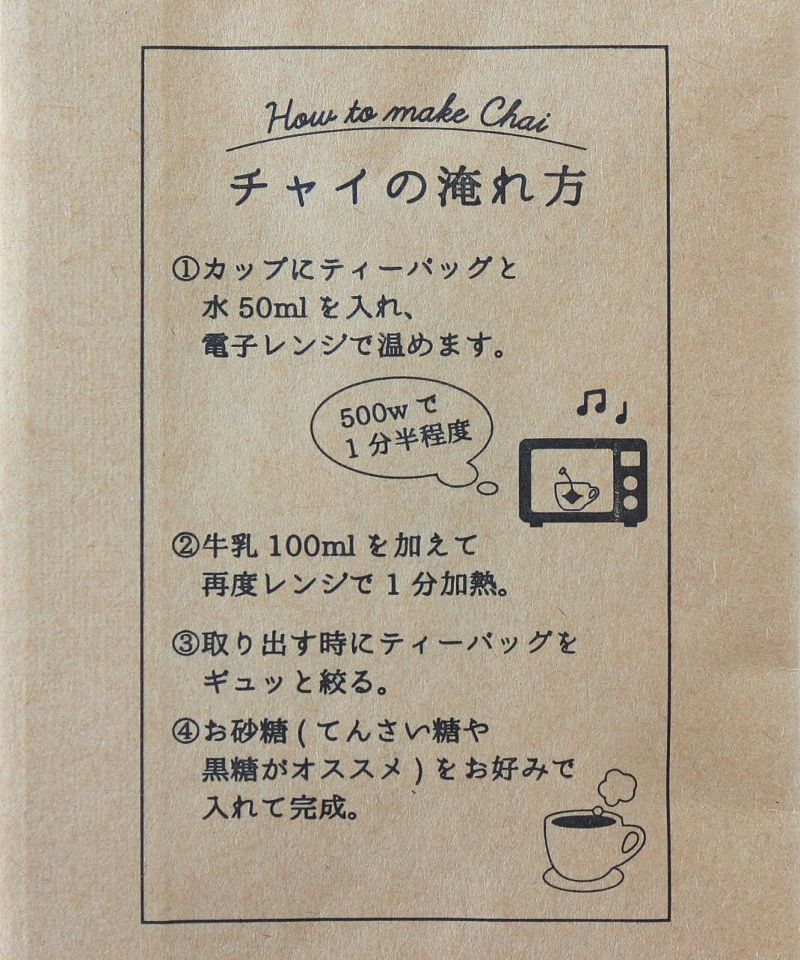 How to make Chai
チャイの淹れ方
①カップにティーバッグと
水 50ml を入れ、
電子レンジで温めます。
500w で
1 分半程度
②牛乳 100ml を加えて
再度レンジで 1 分加熱。
③取り出す時にティーバッグを
ギュッと絞る。
④お砂糖 ( てんさい糖や
黒糖がオススメ ) をお好みで
入れて完成。